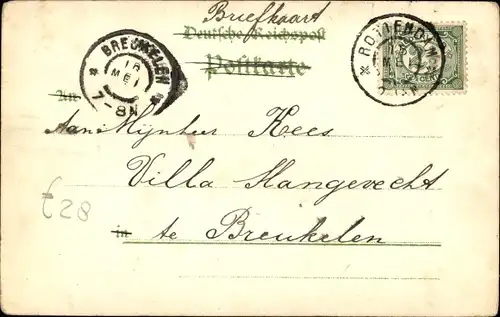 Briefkaart
Deutsche Reichspost
Postkarte
BREUKELEN
18
MEI
7-8N
ROTTERDAM
18
CENT
An
Aan Mijnheer Kees
Villa Vlangevecht
in te Breukelen
£28